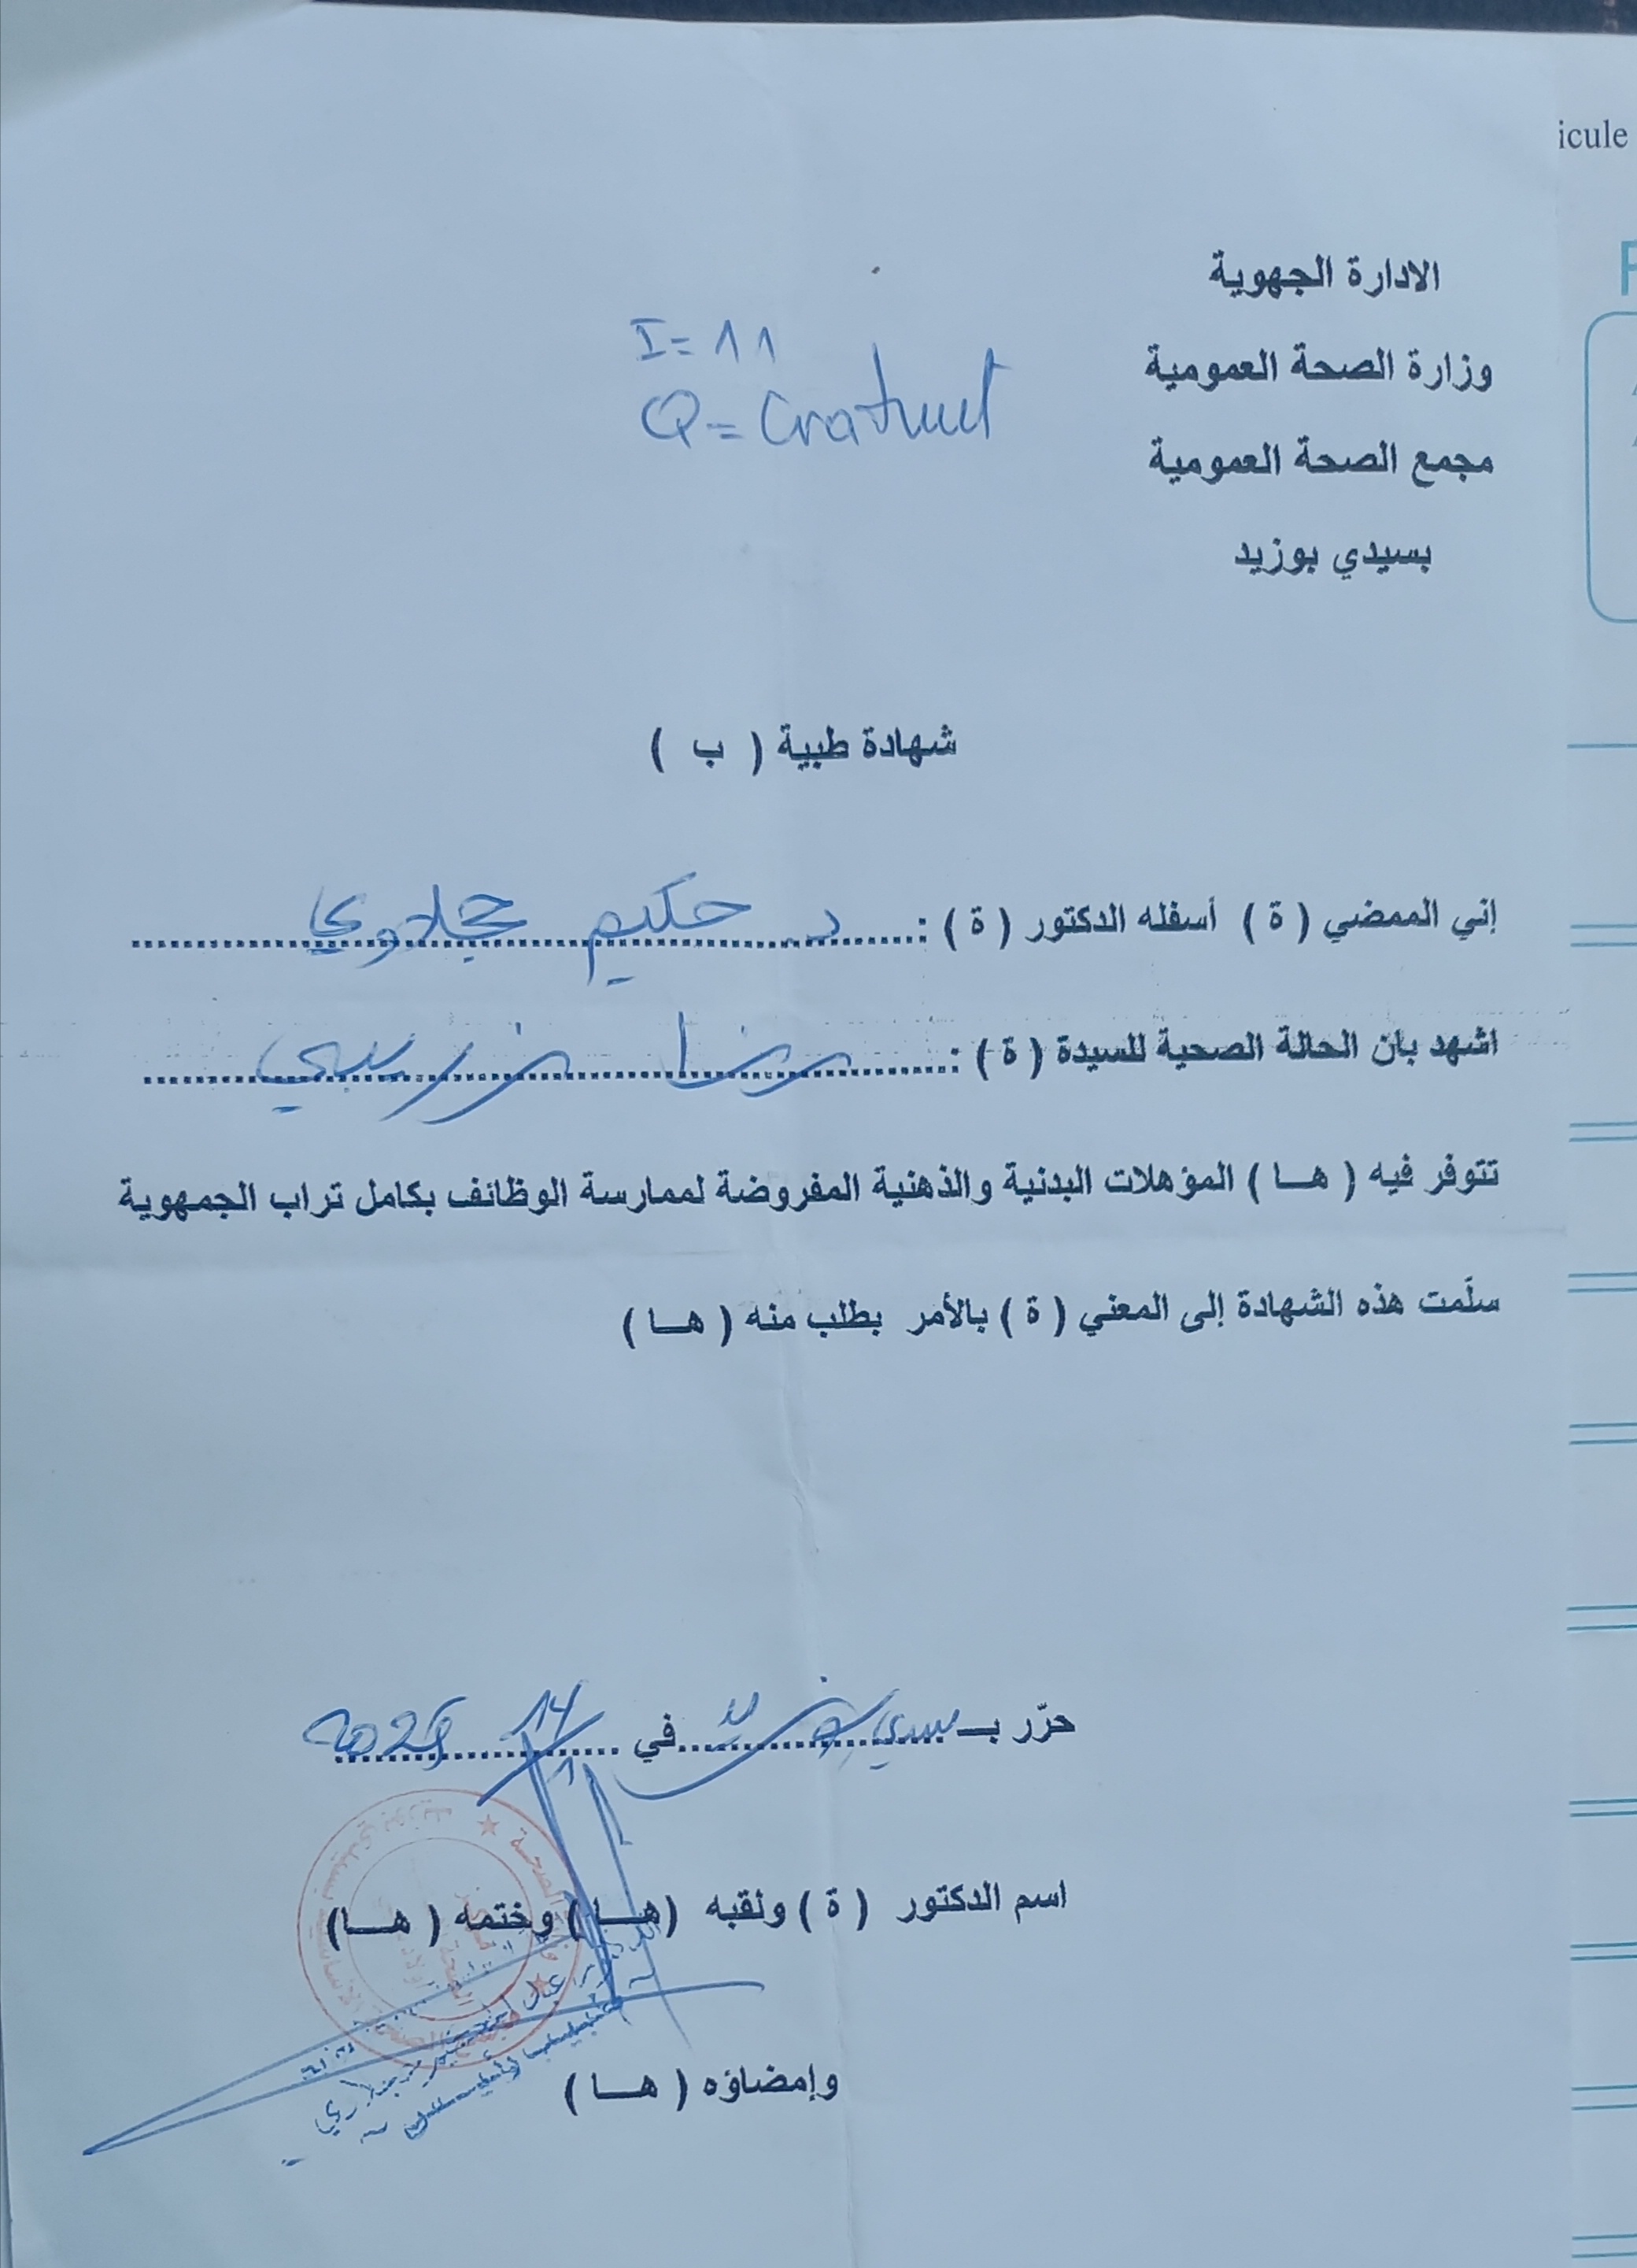 icule
الادارة الجهوية
وزارة الصحة العمومية
مجمع الصحة العمومية
بسيدي بوزيد
I = 11
Q = Gratuit
شهادة طبية ( ب )
إني الممضي ( ة ) أسفله الدكتور ( ة ) : د. حكيم
اشهد بان الحالة الصحية للسيدة ( ة ) : رضا
تتوفر فيه ( هـا ) المؤهلات البدنية والذهنية المفروضة لممارسة الوظائف بكامل تراب الجمهوية
سلّمت هذه الشهادة إلى المعني ( ة ) بالأمر بطلب منه ( هـا )
حرّر بـ سيدي بوزيد في
اسم الدكتور ( ة ) ولقبه (هـا) وختمه ( هـا)
وإمضاؤه ( هـا )